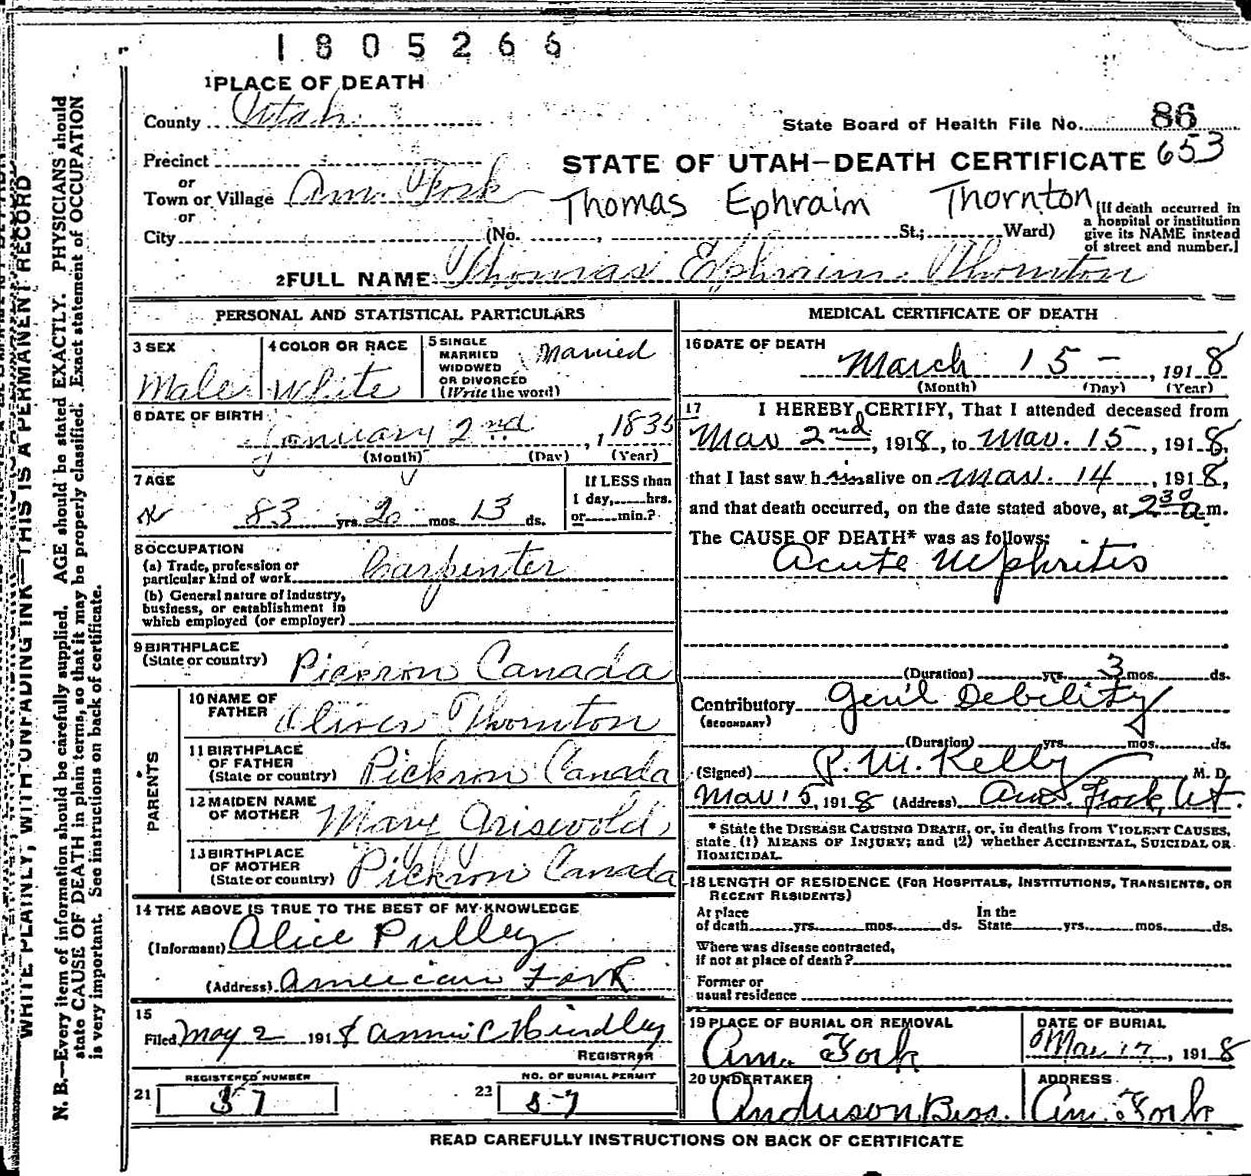 1805266
1 PLACE OF DEATH
County Utah
State Board of Health File No. 86
Precinct
STATE OF UTAH—DEATH CERTIFICATE 653
or
Town or Village Am. Fork
Thomas Ephraim Thornton
or
City (No. , St.; Ward)
[If death occurred in
a hospital or institution
give its NAME instead
of street and number.]
2 FULL NAME Thomas Ephraim Thornton
PERSONAL AND STATISTICAL PARTICULARS
3 SEX
Male
4 COLOR OR RACE
White
5 SINGLE
MARRIED
WIDOWED
OR DIVORCED
(Write the word)
Married
6 DATE OF BIRTH
January 2nd, 1835
(Month) (Day) (Year)
7 AGE
83 yrs. 2 mos. 13 ds.
If LESS than
1 day, hrs.
or min.?
8 OCCUPATION
(a) Trade, profession or
particular kind of work Carpenter
(b) General nature of industry,
business, or establishment in
which employed (or employer)
9 BIRTHPLACE
(State or country) Pickron Canada
PARENTS
10 NAME OF
FATHER Oliver Thornton
11 BIRTHPLACE
OF FATHER
(State or country) Pickron Canada
12 MAIDEN NAME
OF MOTHER Mary Griswold
13 BIRTHPLACE
OF MOTHER
(State or country) Pickron Canada
14 THE ABOVE IS TRUE TO THE BEST OF MY KNOWLEDGE
(Informant) Alice Pulley
(Address) American Fork
15
Filed May 2 1918 Annie C Hindley
REGISTRAR
REGISTERED NUMBER
21 37
NO. OF BURIAL PERMIT
22 57
MEDICAL CERTIFICATE OF DEATH
16 DATE OF DEATH
March 15 – , 1918
(Month) (Day) (Year)
17 I HEREBY CERTIFY, That I attended deceased from
Mar 2nd, 1918, to Mar. 15, 1918,
that I last saw him alive on Mar. 14, 1918,
and that death occurred, on the date stated above, at 2 30 a m.
The CAUSE OF DEATH* was as follows:
Acute Nephritis
(Duration) yrs. 3 mos. ds.
Contributory Gen'l Debility
(SECONDARY)
(Duration) yrs. mos. ds.
(Signed) P. M. Kelly M. D.
Mar 15, 1918 (Address) Am. Fork, Ut.
* State the DISEASE CAUSING DEATH, or, in deaths from VIOLENT CAUSES,
state (1) MEANS OF INJURY; and (2) whether ACCIDENTAL, SUICIDAL OR
HOMICIDAL.
18 LENGTH OF RESIDENCE (FOR HOSPITALS, INSTITUTIONS, TRANSIENTS, OR
RECENT RESIDENTS)
At place
of death yrs. mos. ds.
In the
State yrs. mos. ds.
Where was disease contracted,
if not at place of death?
Former or
usual residence
19 PLACE OF BURIAL OR REMOVAL
Am. Fork
DATE OF BURIAL
Mar 17, 1918
20 UNDERTAKER
Anderson Bros.
ADDRESS
Am. Fork
READ CAREFULLY INSTRUCTIONS ON BACK OF CERTIFICATE
WRITE PLAINLY, WITH UNFADING INK—THIS IS A PERMANENT RECORD
N. B.—Every item of information should be carefully supplied. AGE should be stated EXACTLY. PHYSICIANS should
state CAUSE OF DEATH in plain terms, so that it may be properly classified. Exact statement of OCCUPATION
is very important. See instructions on back of certificate.